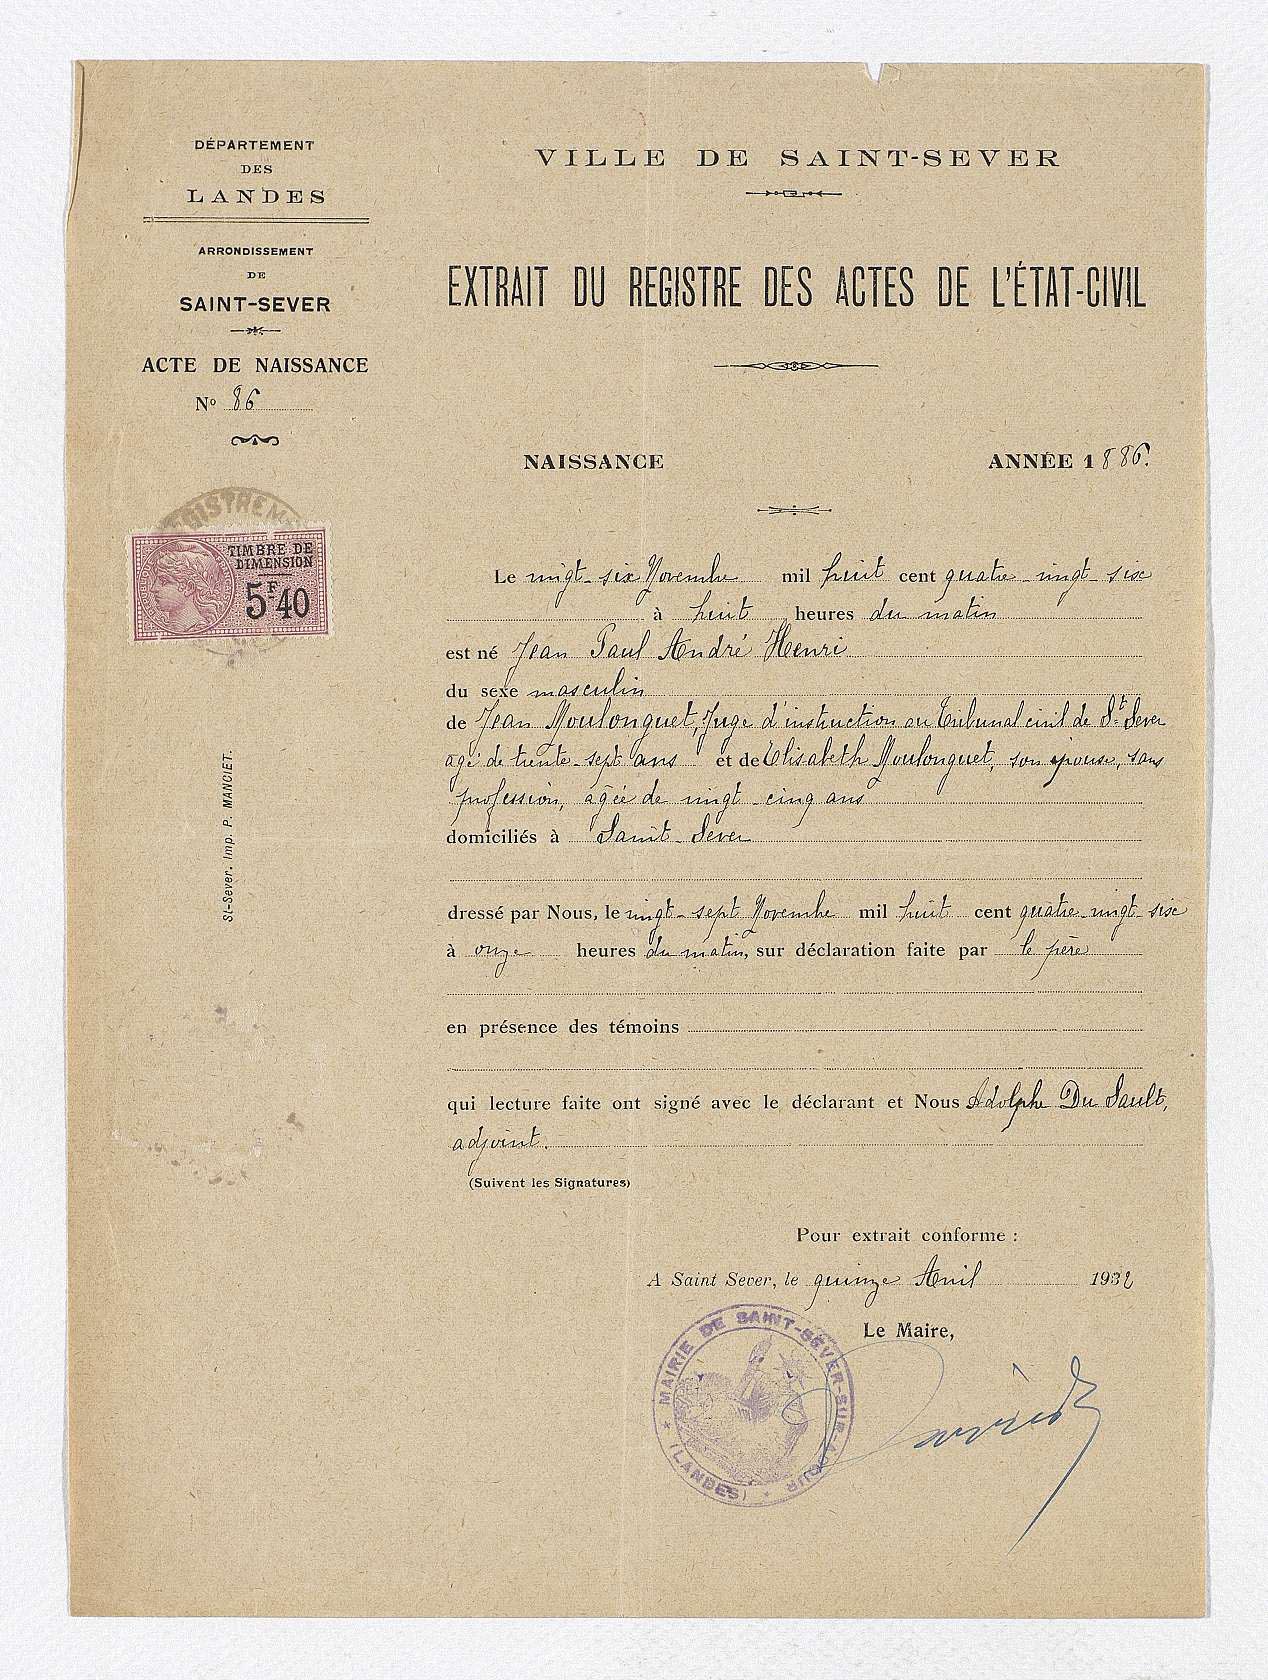 DÉPARTEMENT
DES
LANDES
ARRONDISSEMENT
DE
SAINT-SEVER
ACTE DE NAISSANCE
Nº 86
TIMBRE DE
DIMENSION
5F40
St-Sever. Imp. P. MANCIET.
VILLE DE SAINT-SEVER
EXTRAIT DU REGISTRE DES ACTES DE L'ÉTAT-CIVIL
NAISSANCE ANNÉE 1886.
Le vingt-six Novembre mil huit cent quatre-vingt-six
à huit heures du matin
est né Jean Paul André Henri
du sexe masculin
de Jean Moulonguet, Juge d'instruction au Tribunal civil de St Sever
agé de trente-sept ans et de Elisabeth Moulonguet, son épouse, sans
profession, agée de vingt-cinq ans
domiciliés à Saint-Sever
dressé par Nous, le vingt-sept Novembre mil huit cent quatre-vingt-six
à onze heures du matin, sur déclaration faite par le père
en présence des témoins
qui lecture faite ont signé avec le déclarant et Nous Adolphe Du Sault,
adjoint.
(Suivent les Signatures)
Pour extrait conforme :
A Saint Sever, le quinze Avril 1932
Le Maire,
MAIRIE DE SAINT-SEVER-SUR-ADOUR
(LANDES)